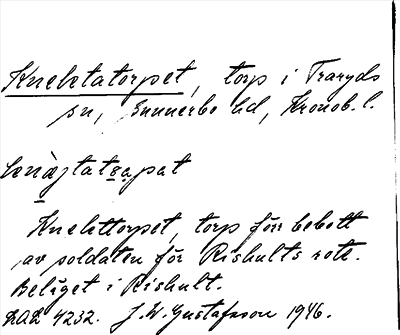 Knektatorpet, torp i Traryds
sn, Sunnerbo hd, Kronob. l.
Knekttorpet, torp förr bebott
av soldaten för Rishults rote.
Beläget i Rishult.
DAL 4232. J. W. Gustafsson 1946.